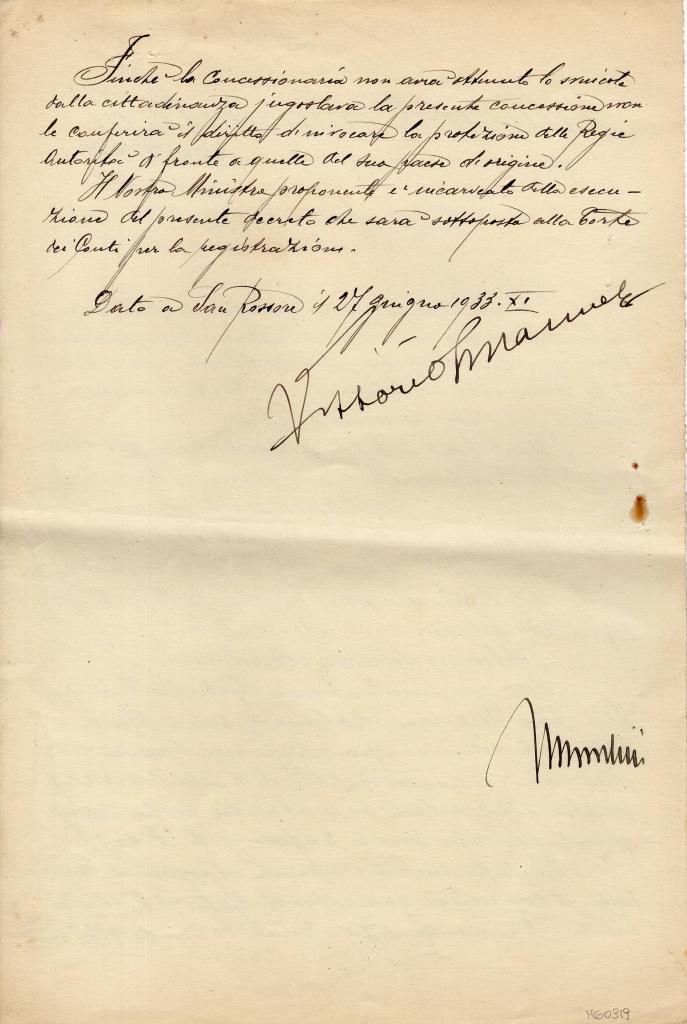 Finchè la Concessionaria non avrà ottenuto lo svincolo
dalla cittadinanza jugoslava la presente concessione non
le conferirà il diritto di invocare la protezione delle Regie
Autorità di fronte a quelle del suo paese di origine.
Il Nostro Ministro proponente è incaricato della esecu-
zione del presente decreto che sarà sottoposto alla Corte
dei Conti per la registrazione.
Dato a San Rossore il 27 giugno 1933. XI
Vittorio Emanuele
Mussolini
H60319